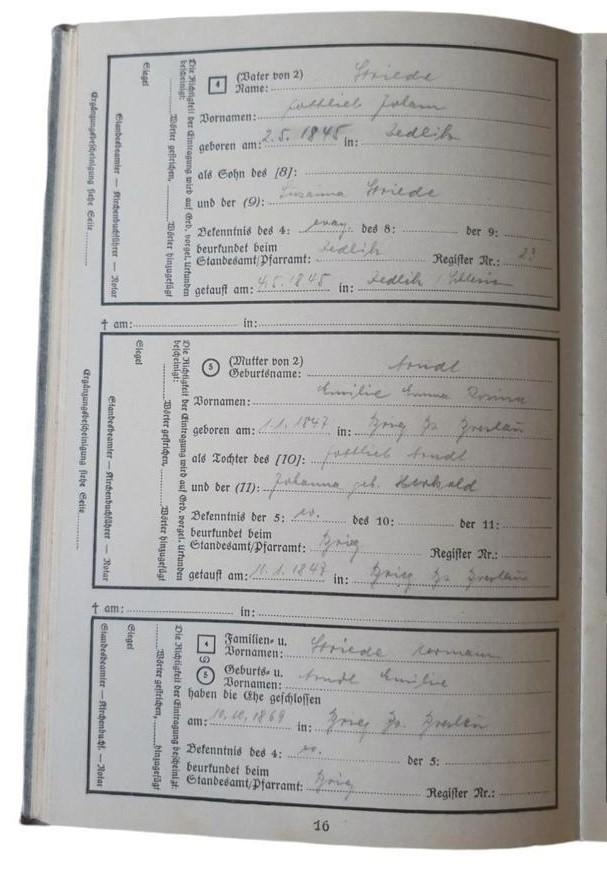 4 (Vater von 2)
Name: Striede
Vornamen: Gottlieb Johann
geboren am: 2.5.1845 in: Zedlitz
als Sohn des [8]:
und der (9): Susanna Striede
Bekenntnis des 4: evang. des 8: der 9:
beurkundet beim
Standesamt/Pfarramt: Zedlitz Register Nr.:
getauft am: 4.5.1845 in: Zedlitz
Die Richtigkeit der Eintragung wird auf Grd. vorgel. Urkunden
bescheinigt:
Wörter gestrichen, Wörter hinzugefügt
Siegel
Standesbeamter — Kirchenbuchführer — Notar
Ergänzungsbescheinigung siehe Seite
† am: in:
5 (Mutter von 2)
Geburtsname: Arndt
Vornamen: Emilie Emma Rosina
geboren am: 1.1.1847 in: Brieg Bz. Breslau
als Tochter des [10]: Gottlieb Arndt
und der (11): Johanna geb.
Bekenntnis der 5: ev. des 10: der 11:
beurkundet beim
Standesamt/Pfarramt: Brieg Register Nr.:
getauft am: 11.1.1847 in: Brieg Bz. Breslau
Die Richtigkeit der Eintragung wird auf Grd. vorgel. Urkunden
bescheinigt:
Wörter gestrichen, Wörter hinzugefügt
Siegel
Standesbeamter — Kirchenbuchführer — Notar
Ergänzungsbescheinigung siehe Seite
† am: in:
4 Familien- u.
Vornamen: Striede Hermann
5 Geburts- u.
Vornamen: Arndt Emilie
haben die Ehe geschlossen
am: 10.10.1869 in: Brieg Bz. Breslau
Bekenntnis des 4: ev. der 5:
beurkundet beim
Standesamt/Pfarramt: Brieg Register Nr.:
Die Richtigkeit der Eintragung wird bescheinigt:
Wörter gestrichen, hinzugefügt
Siegel
Standesbeamter — Kirchenbuchf. — Notar
16